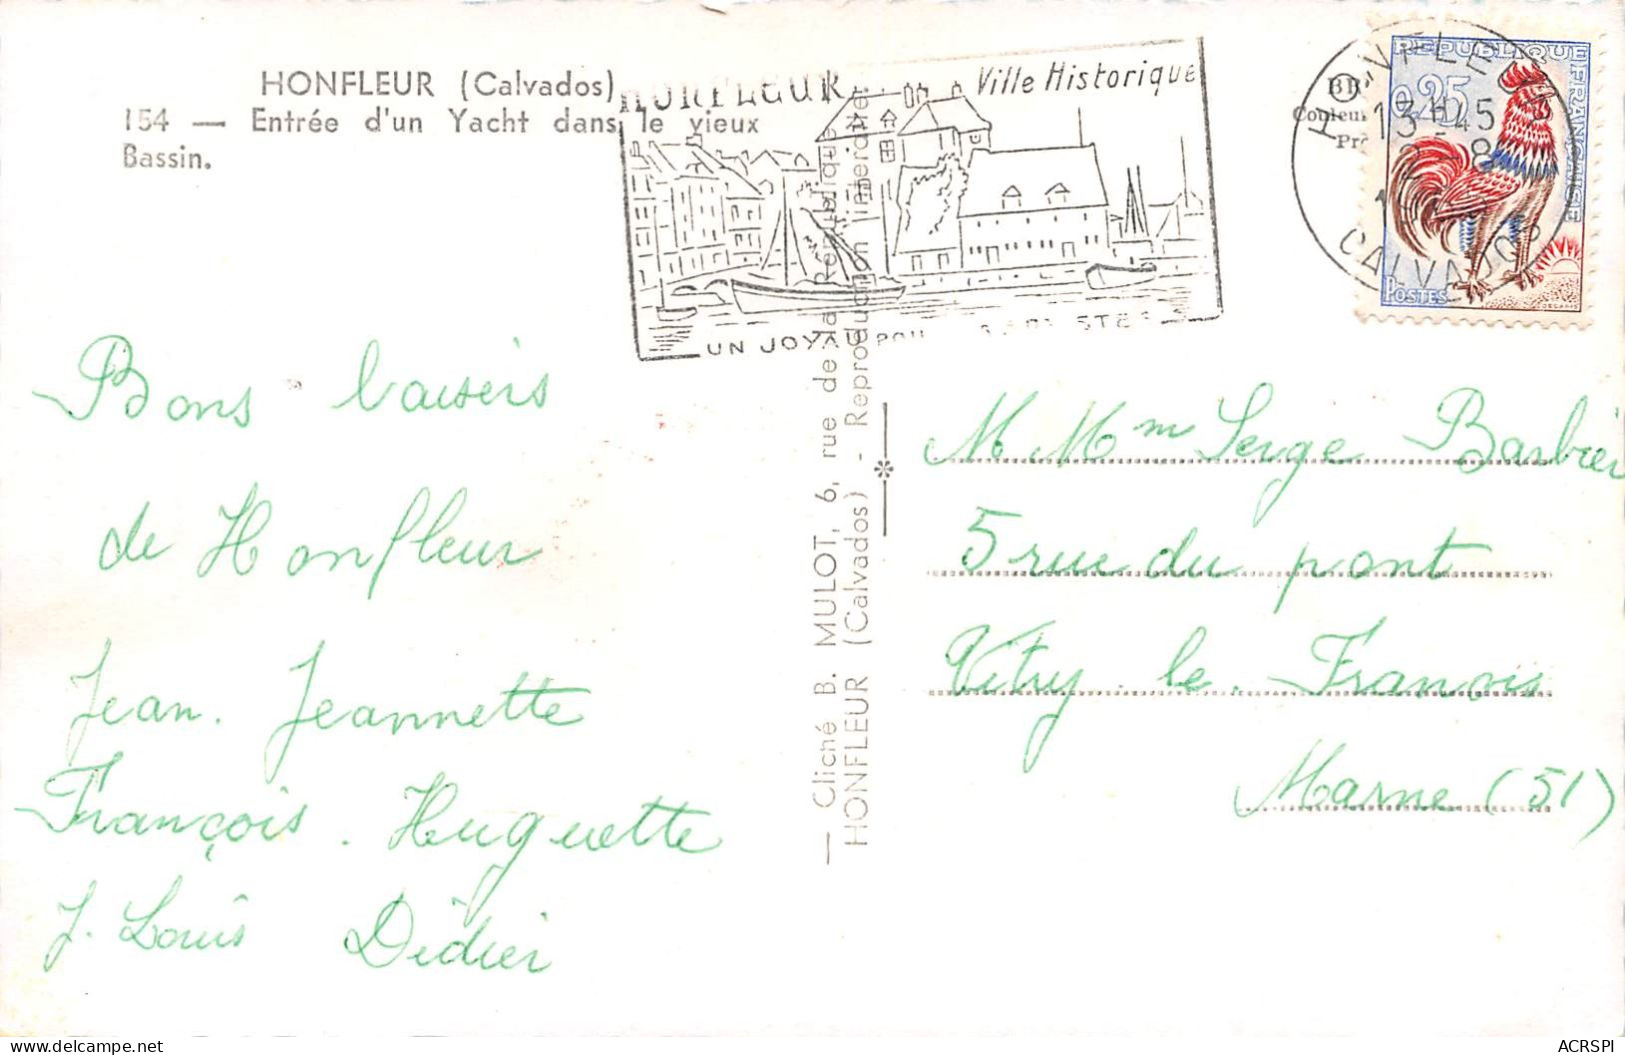 HONFLEUR (Calvados)
154 — Entrée d'un Yacht dans le vieux
Bassin.
HONFLEUR
Ville Historique
UN JOYAU POUR
HONFLEUR
13H45
8
CALVADOS
REPUBLIQUE FRANÇAISE
0,25
POSTES
DECARIS
Couleurs
Bons baisers
de Honfleur
Jean. Jeannette
François. Huguette
J. Louis Didier
— Cliché B. MULOT, 6, rue de la République
HONFLEUR (Calvados) - Reproduction interdite
M Mm Serge Barbier
5 rue du pont
Vitry. le. Franois
Marne (51)
ACRSPI